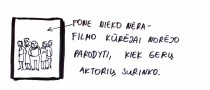 PONE NIEKO NĖRA-
FILMO KŪRĖJAI NORĖJO
PARODYTI, KIEK GERŲ
AKTORIŲ SURINKO.